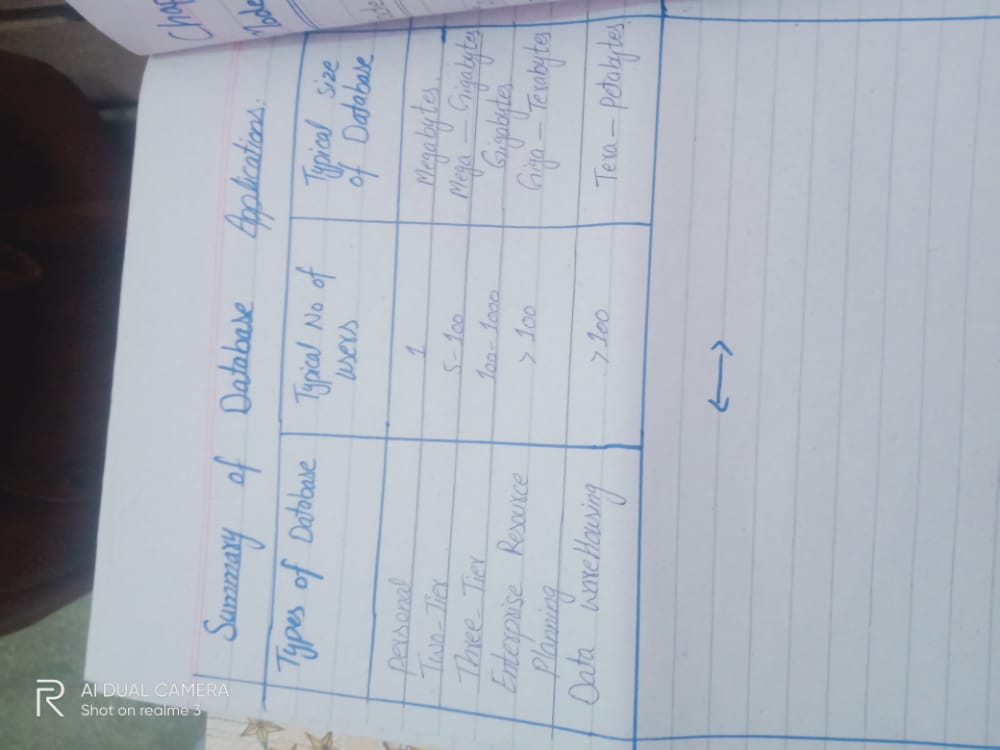 Chap
Summary of Database Applications.
Types of Database Typical No of users Typical size of Database
Personal 1 Megabytes.
Two-Tier 5-100 Mega - Gigabytes
Three-Tier 100-1000 Gigabytes
Enterprise Resource Planning >100 Giga - Terabytes
Data WareHousing >100 Tera - Petabytes.
R AI DUAL CAMERA
Shot on realme 3